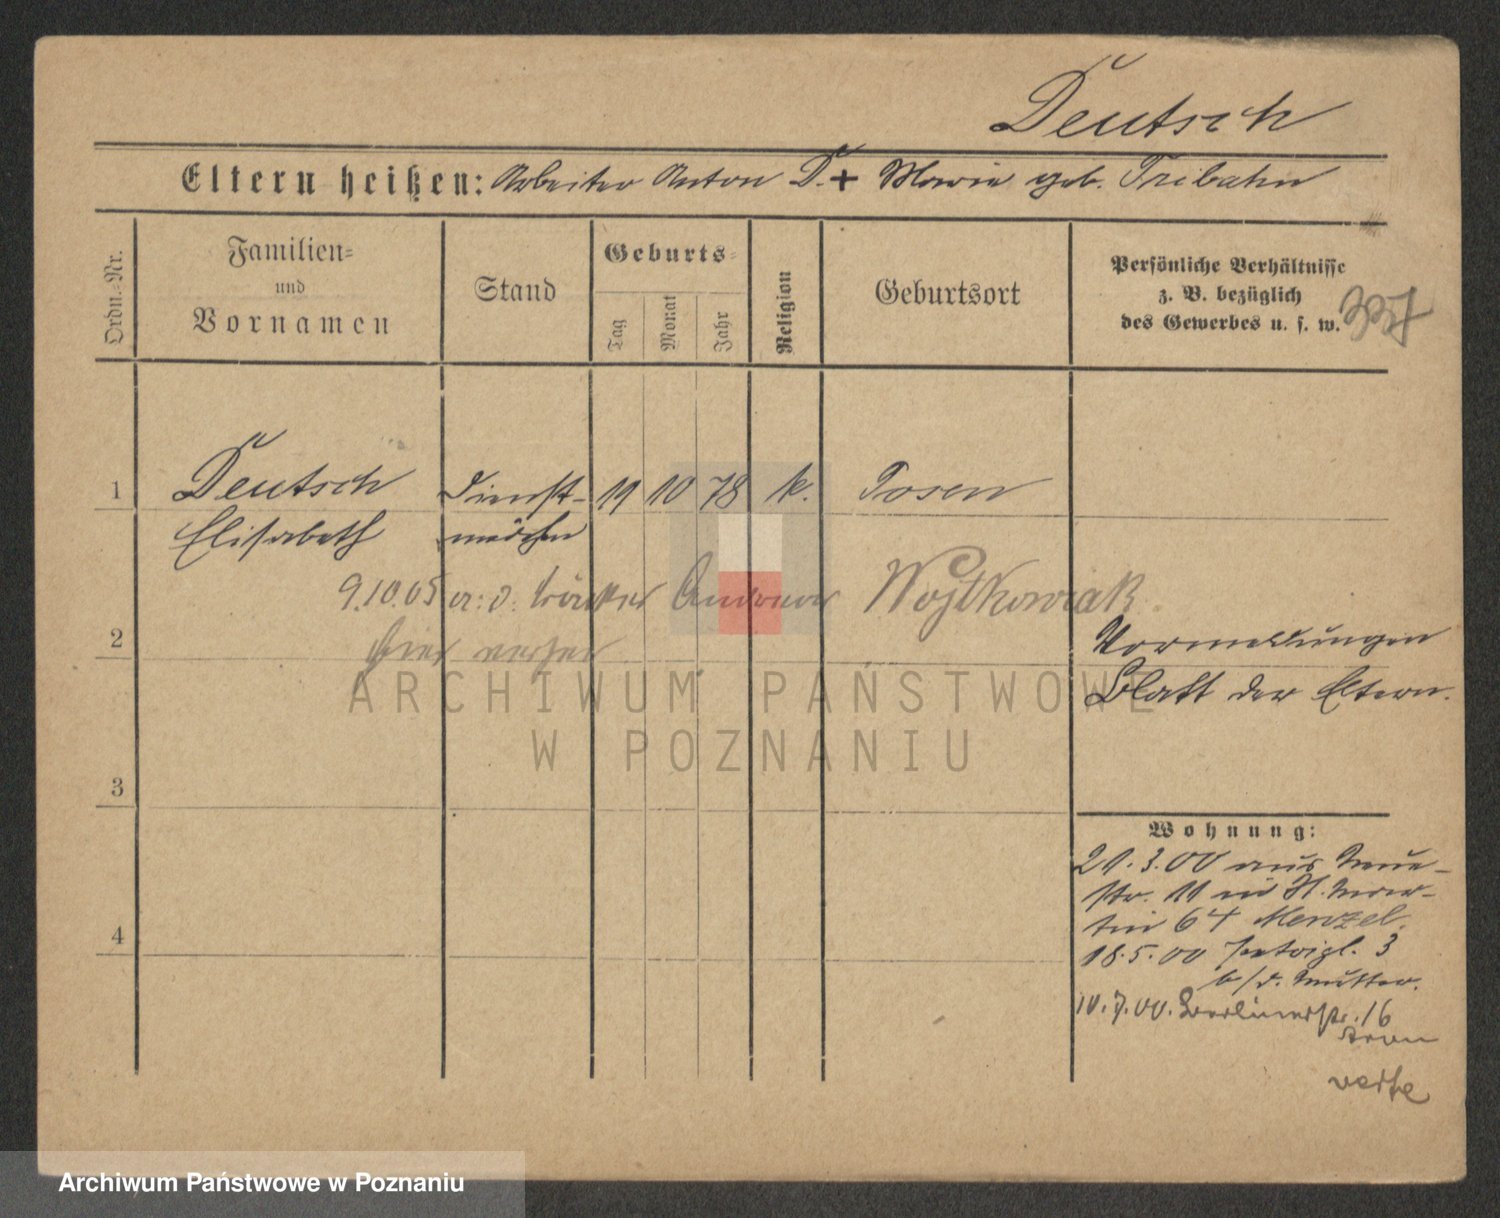 Deutsch
Eltern heißen: Arbeiter Anton D. + Marie geb. Tribahn
Ordn.-Nr.
Familien- und Vornamen
Stand
Geburts-
Tag
Monat
Jahr
Religion
Geburtsort
Persönliche Verhältnisse
z. B. bezüglich
des Gewerbes u. s. w.
1
Deutsch
Elisabeth
Dienst-
mädchen
19 10 78 k. Posen
9.10.05 a: d. Wojtkowiak
hier verh
2
Vormeldungen
Blatt der Eltern.
3
4
Wohnung:
21.3.00 aus Neue-
str. 11 in St. Mar-
tin 64 Menzel.
18.5.00 3
b/d. Mutter.
10.7.00. Berlinerstr. 16
verte
ARCHIWUM PAŃSTWOWE
W POZNANIU
Archiwum Państwowe w Poznaniu